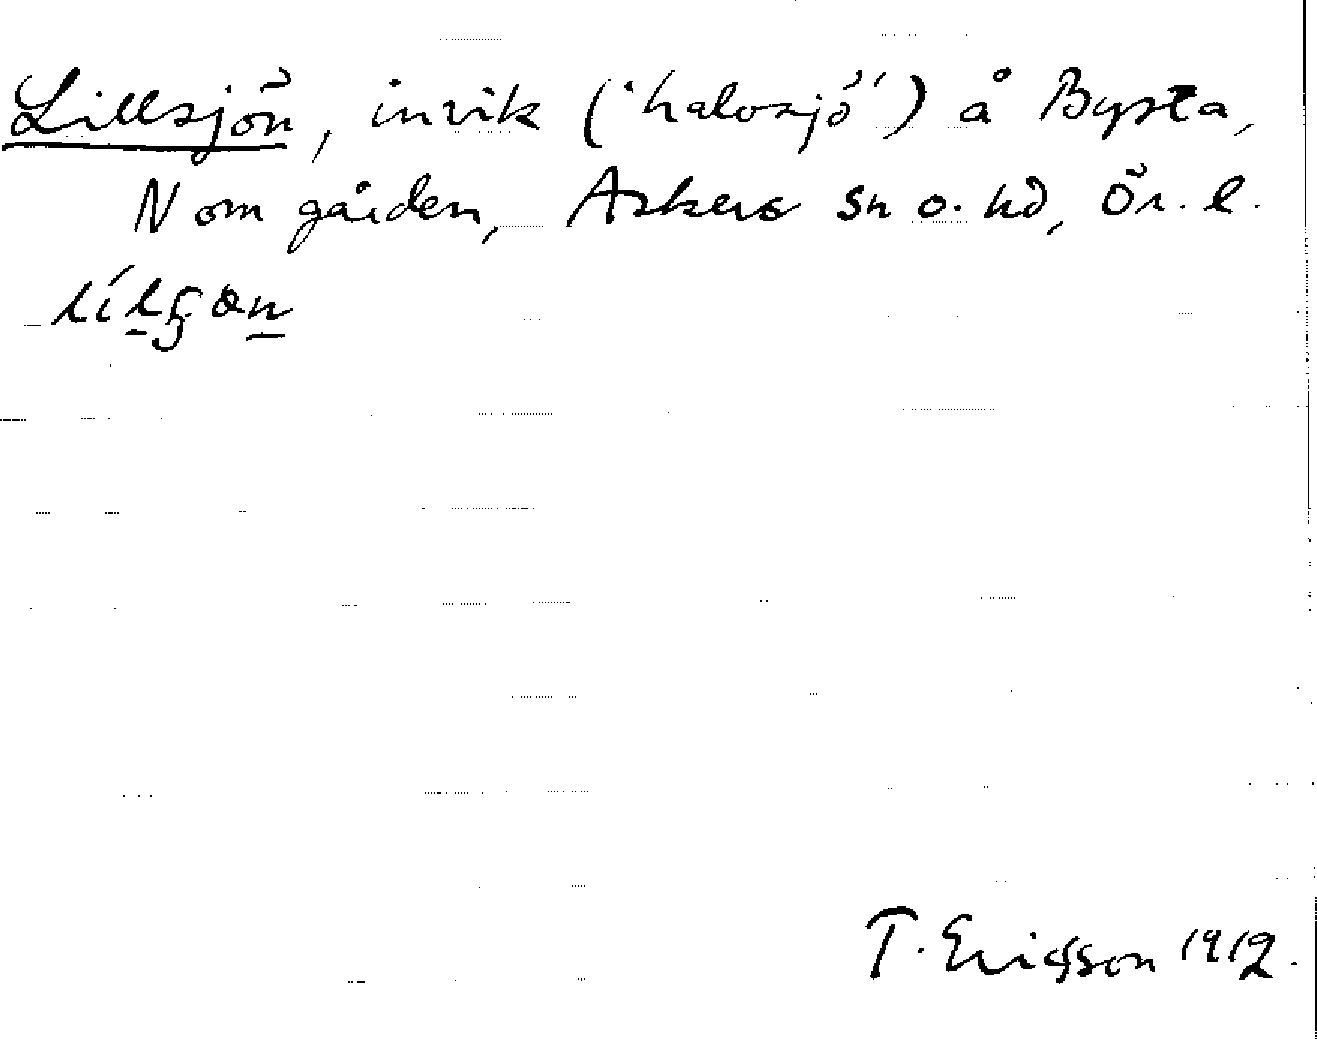 Lillsjön, invik ('halvsjö') å Bysta,
N om gården, Askers sn o. hd, Ör. l.
T. Ericsson 1912.